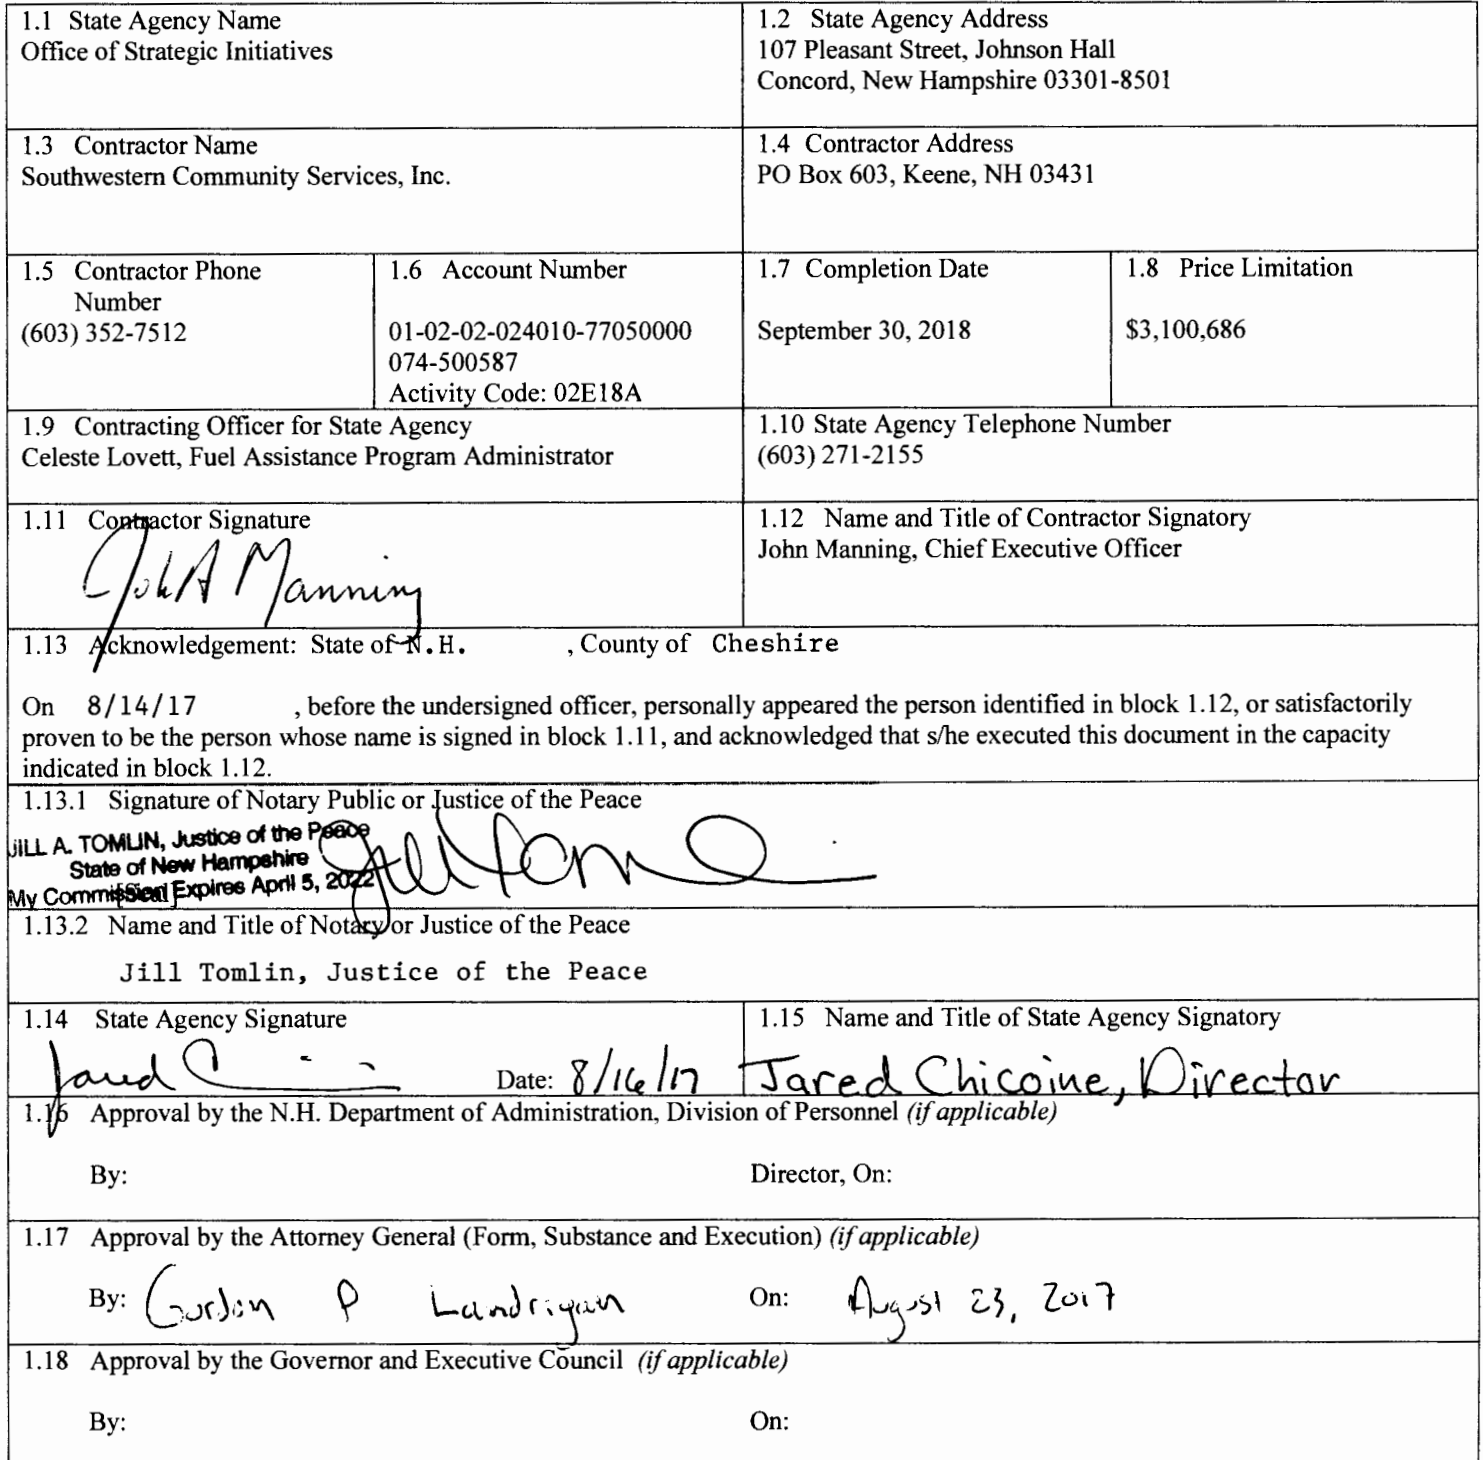 1.1 State Agency Name
Office of Strategic Initiatives
1.2 State Agency Address
107 Pleasant Street, Johnson Hall
Concord, New Hampshire 03301-8501
1.3 Contractor Name
Southwestern Community Services, Inc.
1.4 Contractor Address
PO Box 603, Keene, NH 03431
1.5 Contractor Phone
Number
(603) 352-7512
1.6 Account Number
01-02-02-024010-77050000
074-500587
Activity Code: 02E18A
1.7 Completion Date
September 30, 2018
1.8 Price Limitation
$3,100,686
1.9 Contracting Officer for State Agency
Celeste Lovett, Fuel Assistance Program Administrator
1.10 State Agency Telephone Number
(603) 271-2155
1.11 Contractor Signature
John A Manning
1.12 Name and Title of Contractor Signatory
John Manning, Chief Executive Officer
1.13 Acknowledgement: State of N.H. , County of Cheshire
On 8/14/17 , before the undersigned officer, personally appeared the person identified in block 1.12, or satisfactorily
proven to be the person whose name is signed in block 1.11, and acknowledged that s/he executed this document in the capacity
indicated in block 1.12.
1.13.1 Signature of Notary Public or Justice of the Peace
JILL A. TOMLIN, Justice of the Peace
State of New Hampshire
My Commission Expires April 5, 2022
[Seal]
1.13.2 Name and Title of Notary or Justice of the Peace
Jill Tomlin, Justice of the Peace
1.14 State Agency Signature
Jared Date: 8/16/17
1.15 Name and Title of State Agency Signatory
Jared Chicoine, Director
1.16 Approval by the N.H. Department of Administration, Division of Personnel (if applicable)
By: Director, On:
1.17 Approval by the Attorney General (Form, Substance and Execution) (if applicable)
By: Gordon P Landrigan On: August 23, 2017
1.18 Approval by the Governor and Executive Council (if applicable)
By: On: